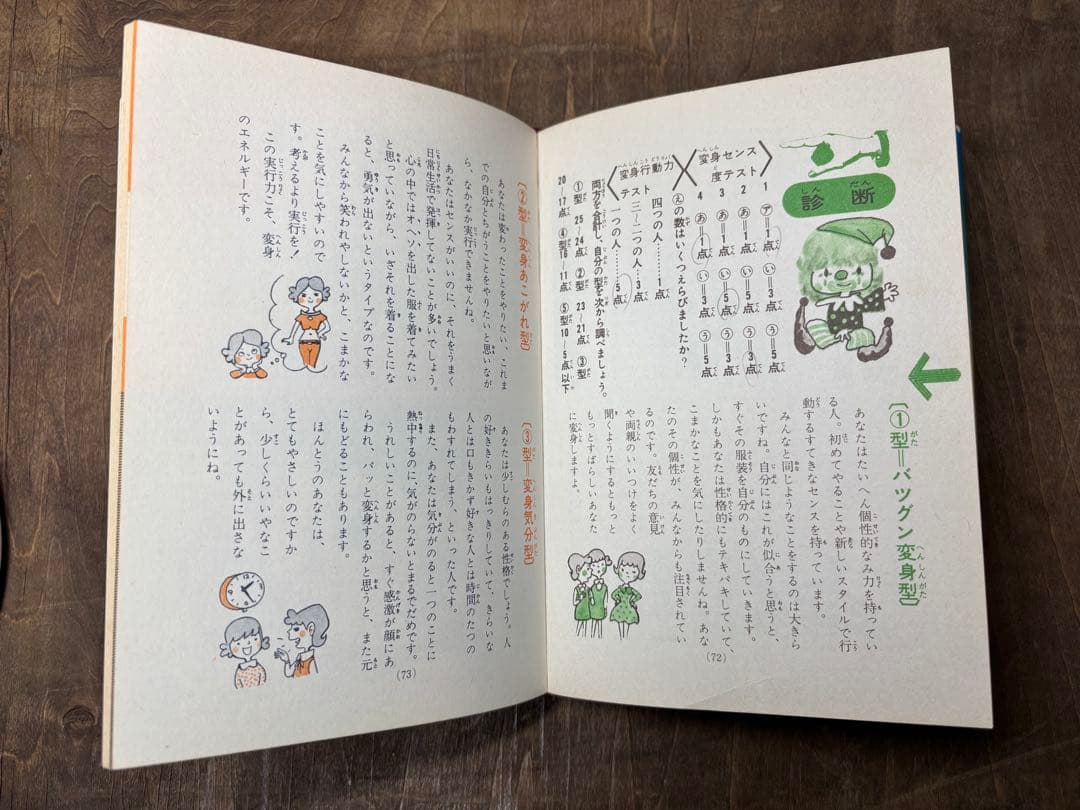 診断
〈変身センス度テスト〉
1 ア＝1点 い＝3点 う＝5点
2 あ＝1点 い＝5点 う＝3点
3 あ＝1点 い＝5点 う＝3点
4 あ＝1点 い＝3点 う＝5点
〈変身行動力テスト〉
えの数はいくつえらびましたか？
四つの人……1点
三～二つの人……3点
一つの人……5点
両方を合計し、自分の型を次から調べましょう。
①型 25～24点 ②型 23～21点 ③型
20～17点 ④型 16～11点 ⑤型 10～5点以下
〔①型＝バツグン変身型〕
あなたはたいへん個性的なみ力を持ってい
る人。初めてやることや新しいスタイルで行
動するすてきなセンスを持っています。
みんなと同じようなことをするのは大きら
いですね。自分にはこれが似合うと思うと、
すぐその服装を自分のものにしていきます。
しかもあなたは性格的にもテキパキしていて、
こまかなことを気にしたりしませんね。あな
たのその個性が、みんなからも注目されてい
るのです。友だちの意見
や両親のいいつけをよく
聞くようにするともっと
もっとすばらしいあなた
に変身しますよ。
(72)
〔②型＝変身あこがれ型〕
あなたは変わったことをやりたい、これま
での自分とちがうことをやりたいと思いなが
ら、なかなか実行できませんね。
あなたはセンスがいいのに、それをうまく
日常生活で発揮してないことが多いでしょう。
心の中ではオヘソを出した服を着てみたい
と思っていながら、いざそれを着ることにな
ると、勇気が出ないというタイプなのです。
みんなから笑われやしないかと、こまかな
ことを気にしやすいので
す。考えるより実行を！
この実行力こそ、変身
のエネルギーです。
〔③型＝変身気分型〕
あなたは少しむらのある性格でしょう。人
の好ききらいもはっきりしていて、きらいな
人とは口もきかず好きな人とは時間のたつの
もわすれてしまう、といった人です。
また、あなたは気分がのると一つのことに
熱中するのに、気がのらないとまるでだめです。
うれしいことがあると、すぐ感激が顔にあ
らわれ、パッと変身するかと思うと、また元
にもどることもあります。
ほんとうのあなたは、
とてもやさしいのですか
ら、少しくらいいやなこ
とがあっても外に出さな
いようにね。
(73)